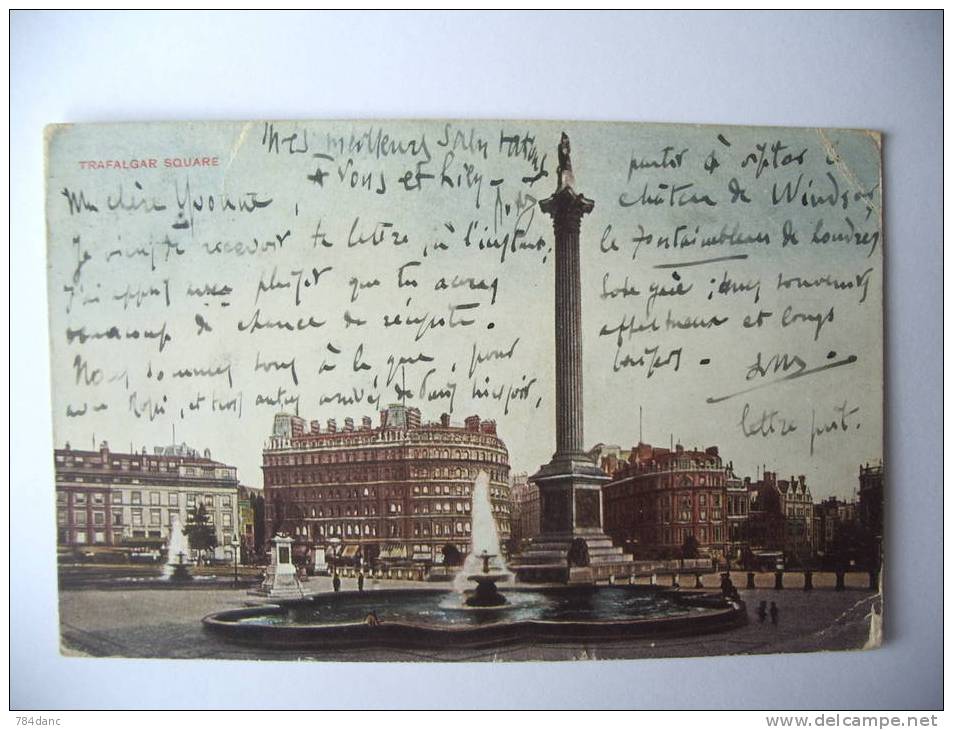 TRAFALGAR SQUARE
Mes meilleures salutations
à vous et Lily
Ma chère Yvonne,
Je viens de recevoir ta lettre, à l'instant,
J'ai appris avec plaisir que tu aurais
beaucoup de chance de réussite.
Nous sommes tous à la gare, pour
avec et trois autres arrivés de Paris hier soir,
partir à visiter le
château de Windsor,
le Fontainebleau de Londres
Sois gaie ; mes souvenirs
affectueux et longs
baisers -
lettre suit.
784danc
www.delcampe.net